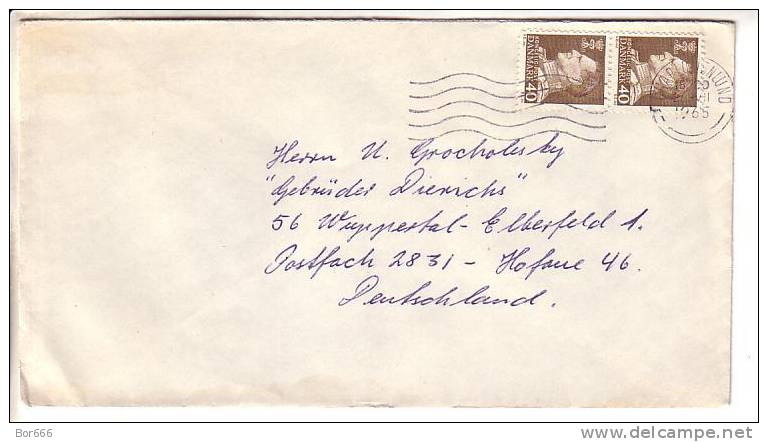 DANMARK 40
DANMARK 40
1965
Herrn U. Grocholesky
"Gebrüder Dierichs"
56 Wuppertal - Elberfeld 1.
Postfach 2831 - Hofaue 46.
Deutschland.
Bor666
delcampe.net